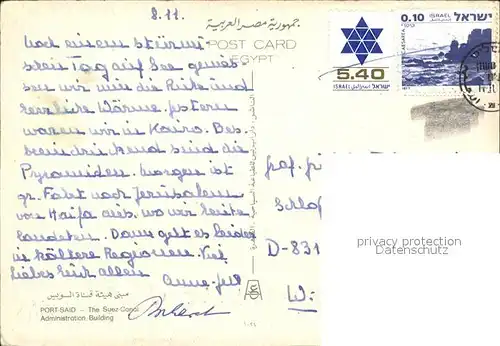 8.11.
جمهورية مصر العربية
POST CARD
EGYPT
ISRAEL
0.10 ישראל
CAESAREA
5.40
ISRAEL ישראל
Nach einem stürmi
schen Tag auf See genies
sen wir nun die Ruhe und
herrliche Wärme. Gestern
waren wir in Kairo. Bes.
beeindruckend sind die
Pyramiden. Morgen ist
gr. Fahrt nach Jerusalem
von Haifa aus, wo wir heute
landeten. Dann geht es leider
in kältere Regionen. Viel
Liebes Euch allen
D-831
privacy protection
Datenschutz
مبنى هيئة قناة السويس
PORT-SAID – The Suez-Canal
Administration Building